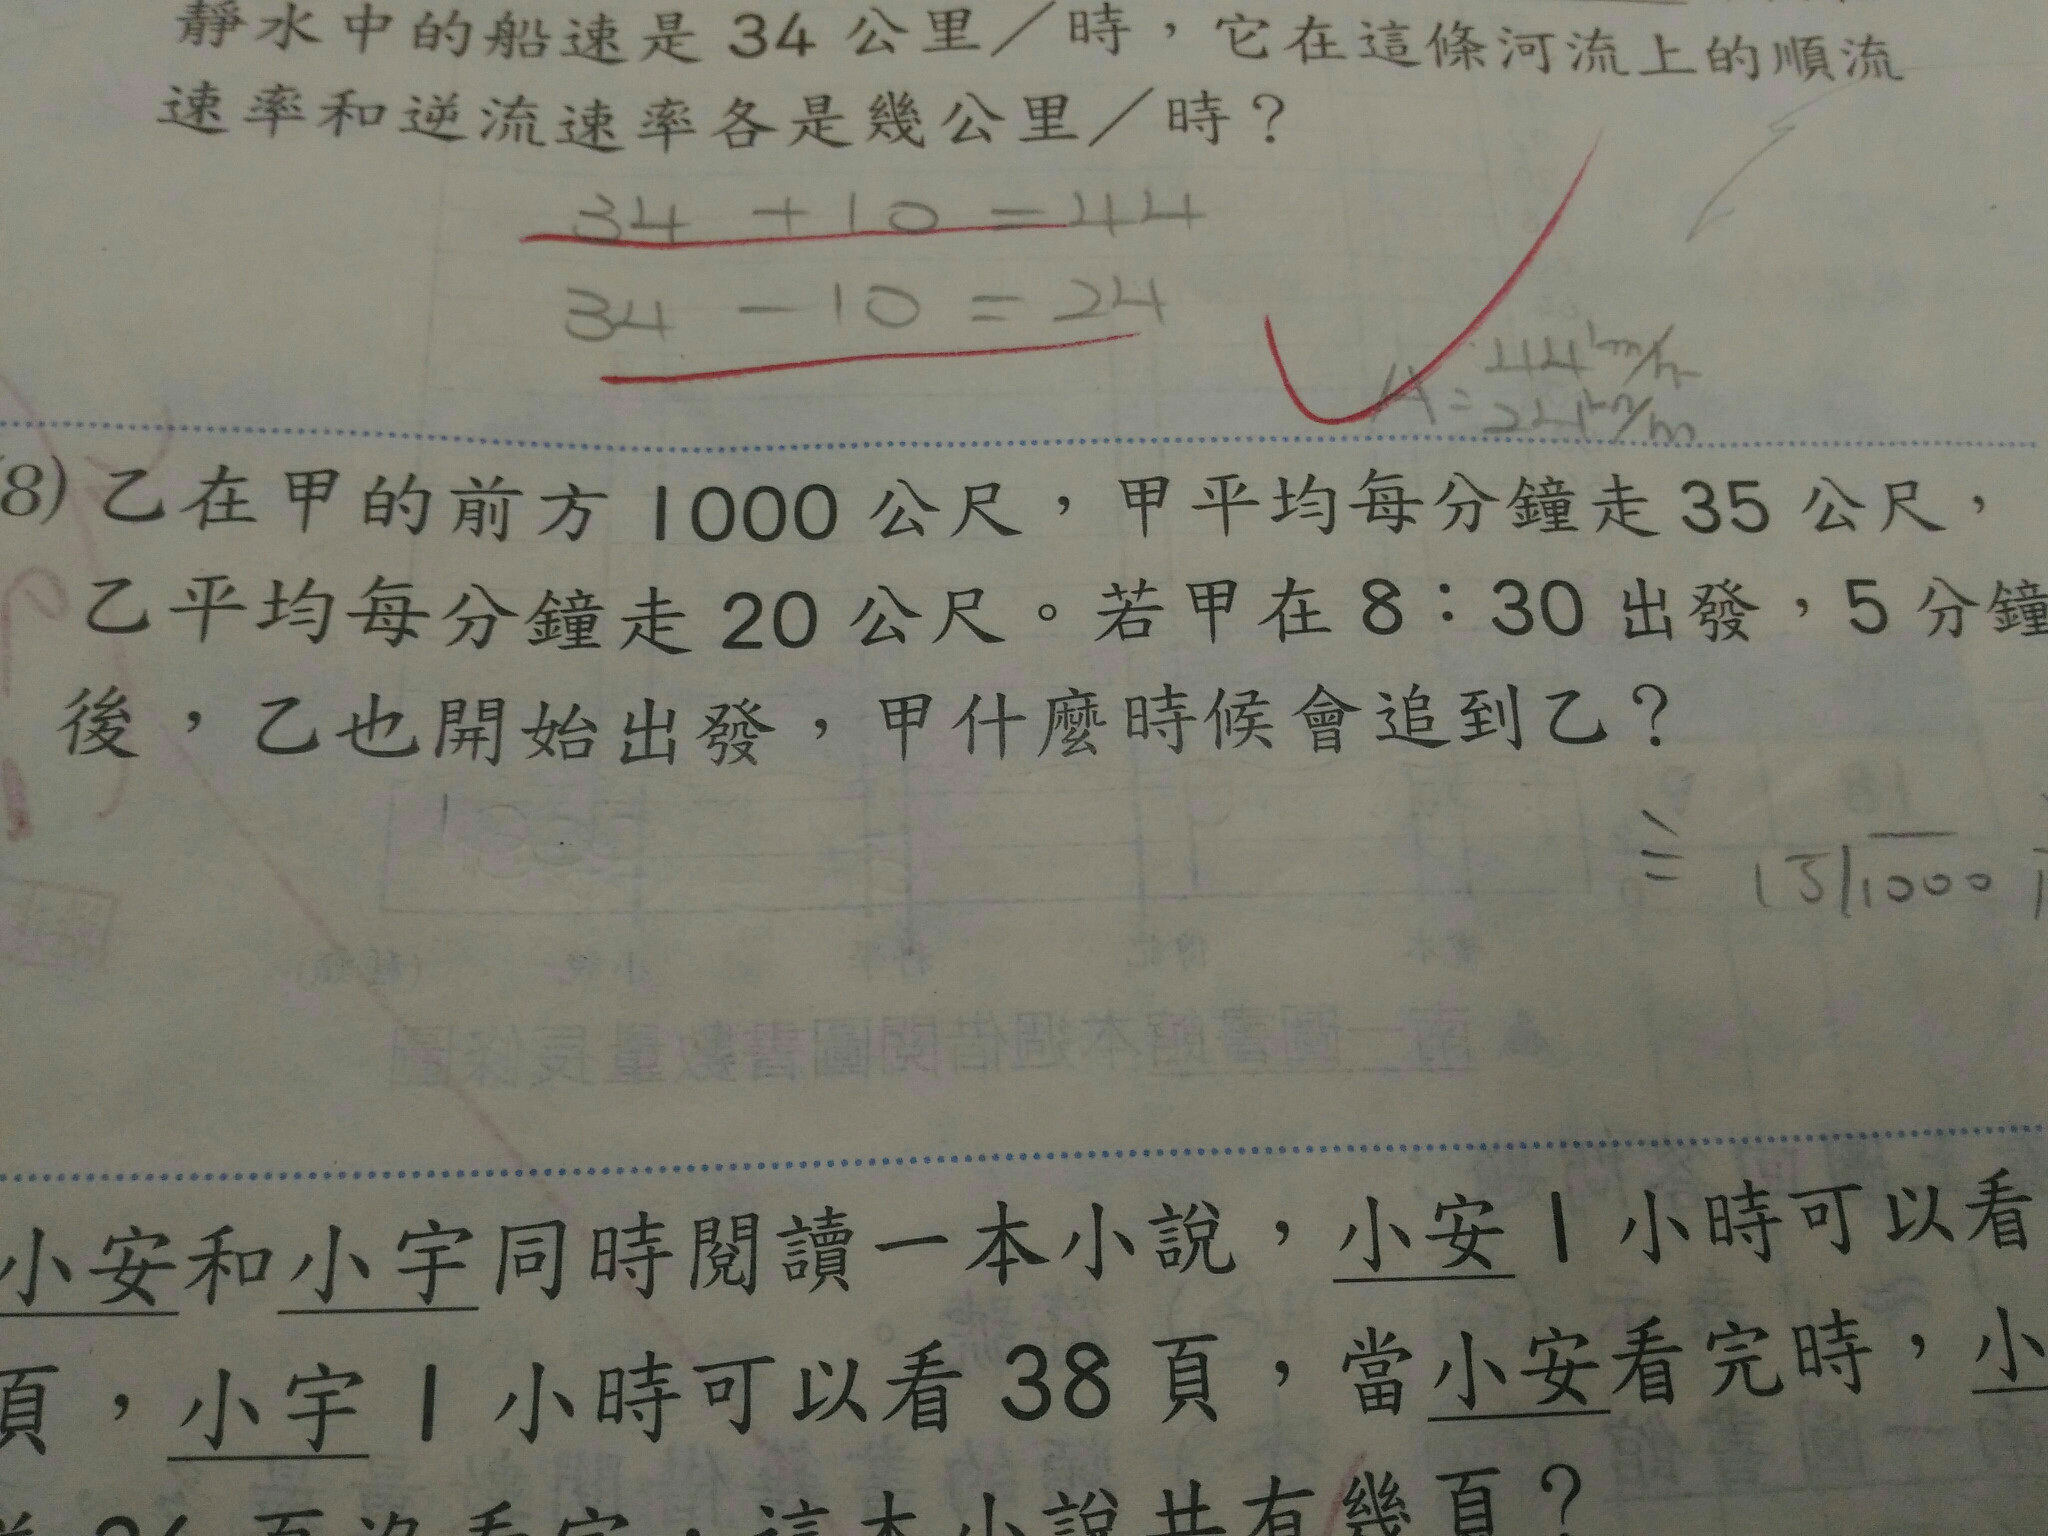 靜水中的船速是 34 公里／時，它在這條河流上的順流
速率和逆流速率各是幾公里／時？
34 + 10 = 44
34 - 10 = 24
A = 44 km/h
24 km/m
(8) 乙在甲的前方 1000 公尺，甲平均每分鐘走 35 公尺，
乙平均每分鐘走 20 公尺。若甲在 8：30 出發，5 分鐘
後，乙也開始出發，甲什麼時候會追到乙？
15/1000
小安和小宇同時閱讀一本小說，小安 1 小時可以看
頁，小宇 1 小時可以看 38 頁，當小安看完時，小
頁沒看完，這本小說共有幾頁？